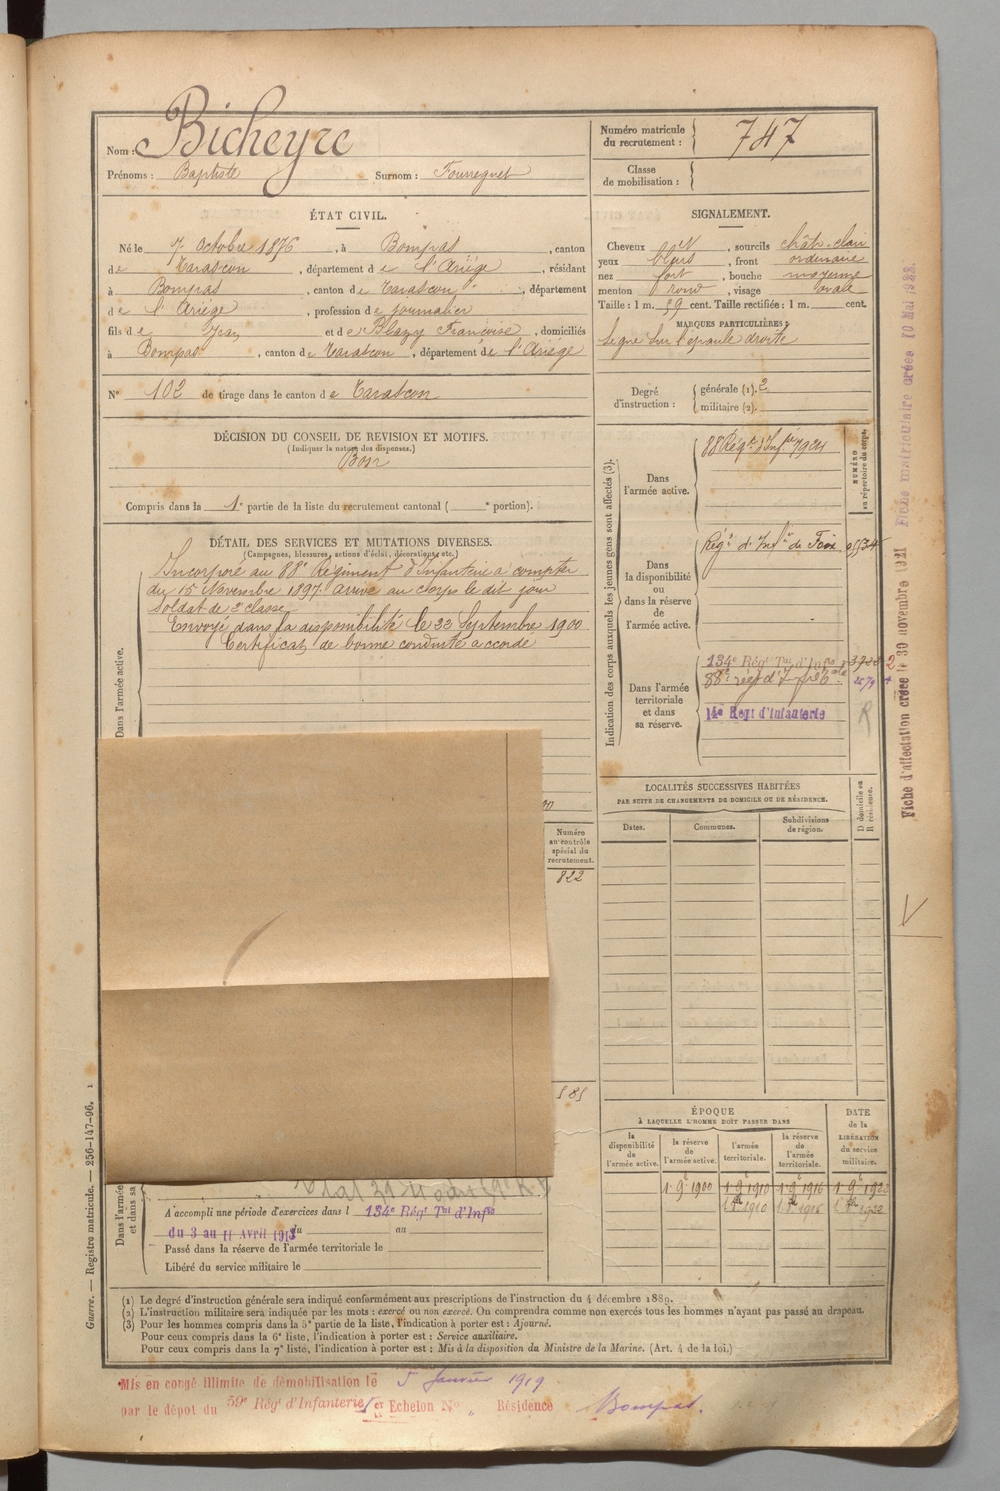 Nom : Bicheyre
Prénoms : Baptiste Surnom : Fourreguet
Numéro matricule du recrutement : 747
Classe de mobilisation :
ÉTAT CIVIL.
Né le 7 Octobre 1876, à Bompas, canton
de Tarascon, département de l'Ariége, résidant
à Bompas, canton de Tarascon, département
de l'Ariége, profession de journalier
fils de Jean et de Blazy Françoise, domiciliés
à Bompas, canton de Tarascon, département de l'Ariége
N° 102 de tirage dans le canton de Tarascon
DÉCISION DU CONSEIL DE REVISION ET MOTIFS.
(Indiquer la nature des dispenses.)
Bon
Compris dans la 1e partie de la liste du recrutement cantonal ( e portion).
DÉTAIL DES SERVICES ET MUTATIONS DIVERSES.
(Campagnes, blessures, actions d'éclat, décorations, etc.)
Dans l'armée active.
Incorporé au 88e Régiment d'Infanterie à compter
du 15 Novembre 1897 arrivé au corps le dit jour
Soldat de 2e classe
Envoyé dans la disponibilité le 23 Septembre 1900
Certificat de bonne conduite accordé
Numéro au contrôle spécial du recrutement.
822
585
Dans l'armée
et dans sa
A accompli une période d'exercices dans l 134e Régt Tal d'Infie
du 3 au 11 Avril 1913 du au
Passé dans la réserve de l'armée territoriale le
Libéré du service militaire le
SIGNALEMENT.
Cheveux blet, sourcils chât-clair
yeux bleus, front ordinaire
nez fort, bouche moyenne
menton rond, visage ovale
Taille : 1 m. 59 cent. Taille rectifiée : 1 m. cent.
MARQUES PARTICULIÈRES :
Signe sur l'épaule droite
Degré d'instruction : générale (1). 2
militaire (2).
Indication des corps auxquels les jeunes gens sont affectés (3).
NUMÉRO au répertoire du corps.
Dans l'armée active.
88e Régt d'Infie 7924
Dans la disponibilité ou dans la réserve de l'armée active.
Régt d'Infie de Foix
Dans l'armée territoriale et dans sa réserve.
134e Régt Tal d'Infie
88e régt d'Infie
14e Régt d'Infanterie
R
LOCALITÉS SUCCESSIVES HABITÉES
PAR SUITE DE CHANGEMENTS DE DOMICILE OU DE RÉSIDENCE.
Dates. Communes. Subdivisions de région. D domicile ou R résidence.
ÉPOQUE
À LAQUELLE L'HOMME DOIT PASSER DANS
DATE de la LIBÉRATION du service militaire.
la disponibilité de l'armée active. la réserve de l'armée active. l'armée territoriale. la réserve de l'armée territoriale.
1e 9e 1900 1e 9e 1910 1e 9e 1916 1e 9e 1922
1910 1916 1922
(1) Le degré d'instruction générale sera indiqué conformément aux prescriptions de l'instruction du 4 décembre 1889.
(2) L'instruction militaire sera indiquée par les mots : exercé ou non exercé. On comprendra comme non exercés tous les hommes n'ayant pas passé au drapeau.
(3) Pour les hommes compris dans la 5e partie de la liste, l'indication à porter est : Ajourné.
Pour ceux compris dans la 6e liste, l'indication à porter est : Service auxiliaire.
Pour ceux compris dans la 7e liste, l'indication à porter est : Mis à la disposition du Ministre de la Marine. (Art. 4 de la loi.)
Mis en congé illimité de démobilisation le 5 Janvier 1919
par le dépot du 59e Régt d'Infanterie 1er Echelon No „ Résidence Bompas.
Guerre. — Registre matricule. — 256-147-96. 1
Fiche d'affectation créée le 30 novembre 1921
Fiche matriculaire créée 10 Mai 1922.